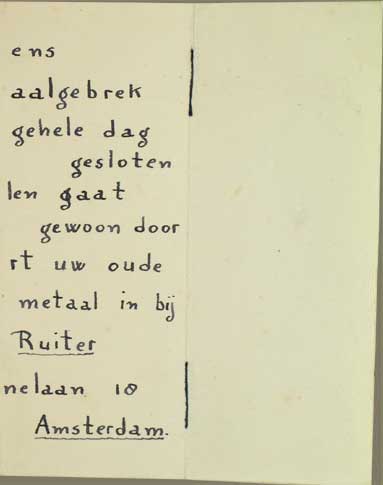 ens
aalgebrek
gehele dag
gesloten
len gaat
gewoon door
rt uw oude
metaal in bij
Ruiter
nelaan 18
Amsterdam.